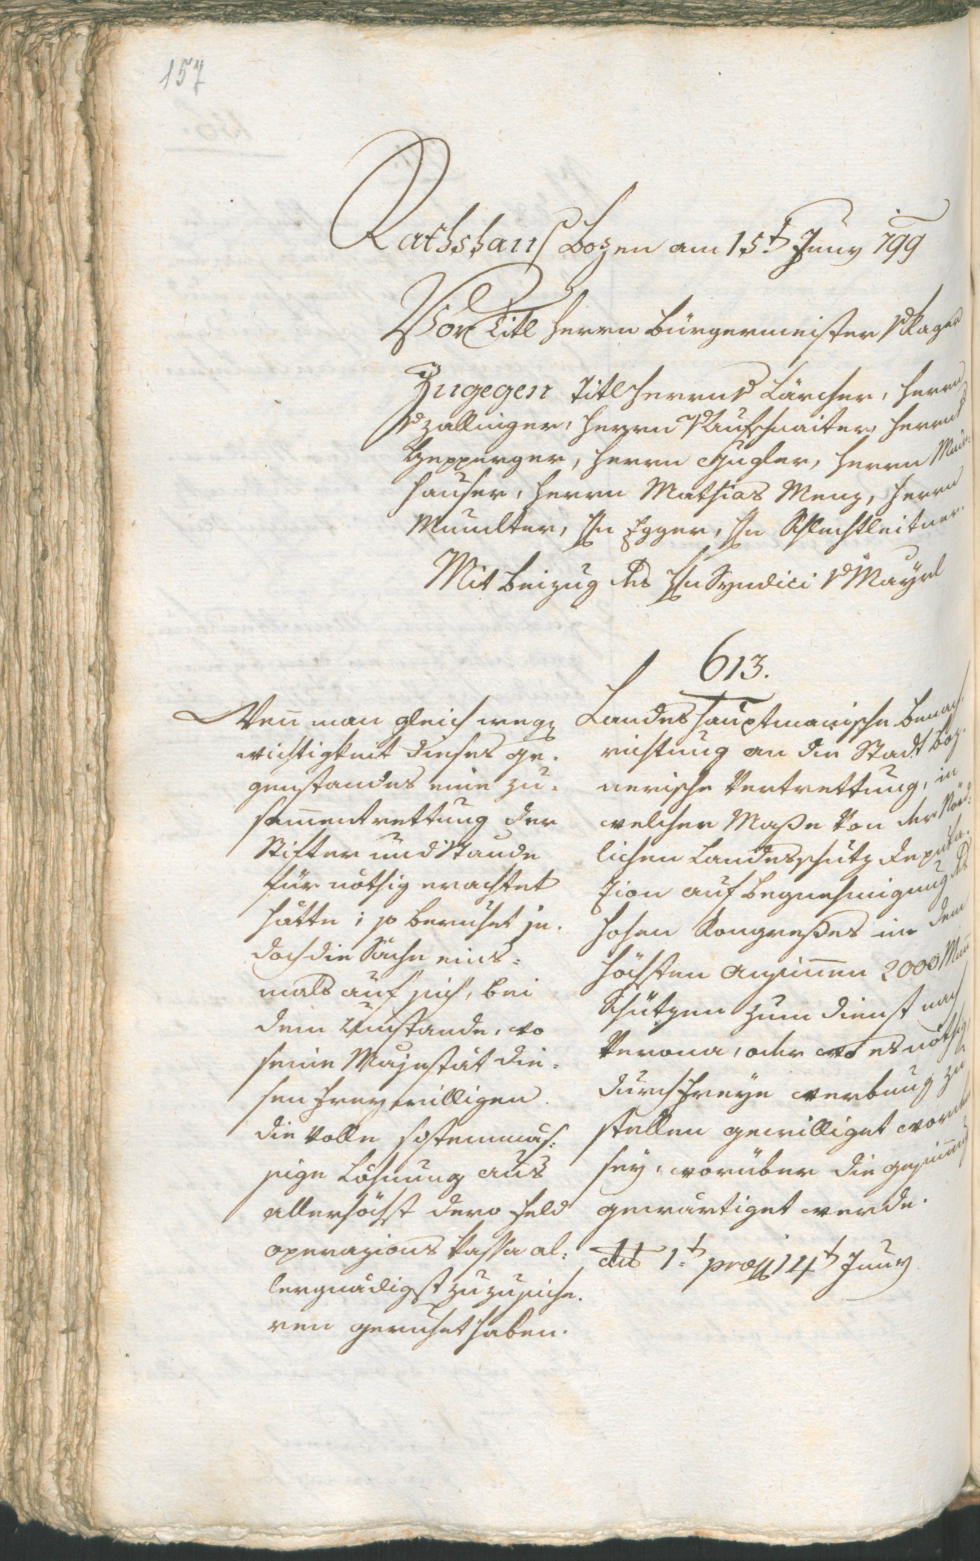 157
Rathshauß Bozen am 15t Juny 799
Vor Titl Herrn Bürgermeister v Plager
Zugegen Titl Herrn v Lärcher, Herrn
v Zallinger, Herrn v Aufschnaiter, Herrn
Gepperger, Herrn Gugler, Herrn
hauser, Herrn Mathias Menz, Herrn
Mumelter, Hn Egger, Hn Schlechtleitner.
Mit Beizug des Hn Syndici v Mayrl
613.
Landeshauptmanische Benach
richtung an die Stadt Boz
nerische Vertrettung, in
welcher Maße von der
lichen Landesschutz Deputa
zion auf Begnehmigung des
hohen Kongreßes in dem
höchsten Ansinnen 2000 Mann
Schützen zum Dienst nach
Verona, oder wo es nöthig
durch freye Werbung zu
stellen gewilliget worden
sey, worüber die
gewärtiget werde.
ddo 1t præs 14t Juny
Wenn man gleich wegen
Wichtigkeit dieses Ge-
genstandes eine Zu-
samentrettung der
Stifter und Stände
für nöthig erachtet
hätte; so beruhet je-
doch die Sache eins-
mals auf sich, bei
dem Umstande, wo
seine Majestät die-
sen Freywilligen
die volle sistemmäs-
sige Löhnung aus
allerhöchst dero Feld
operazions Kassa al-
lergnädigst zuzusiche-
ren geruhet haben.